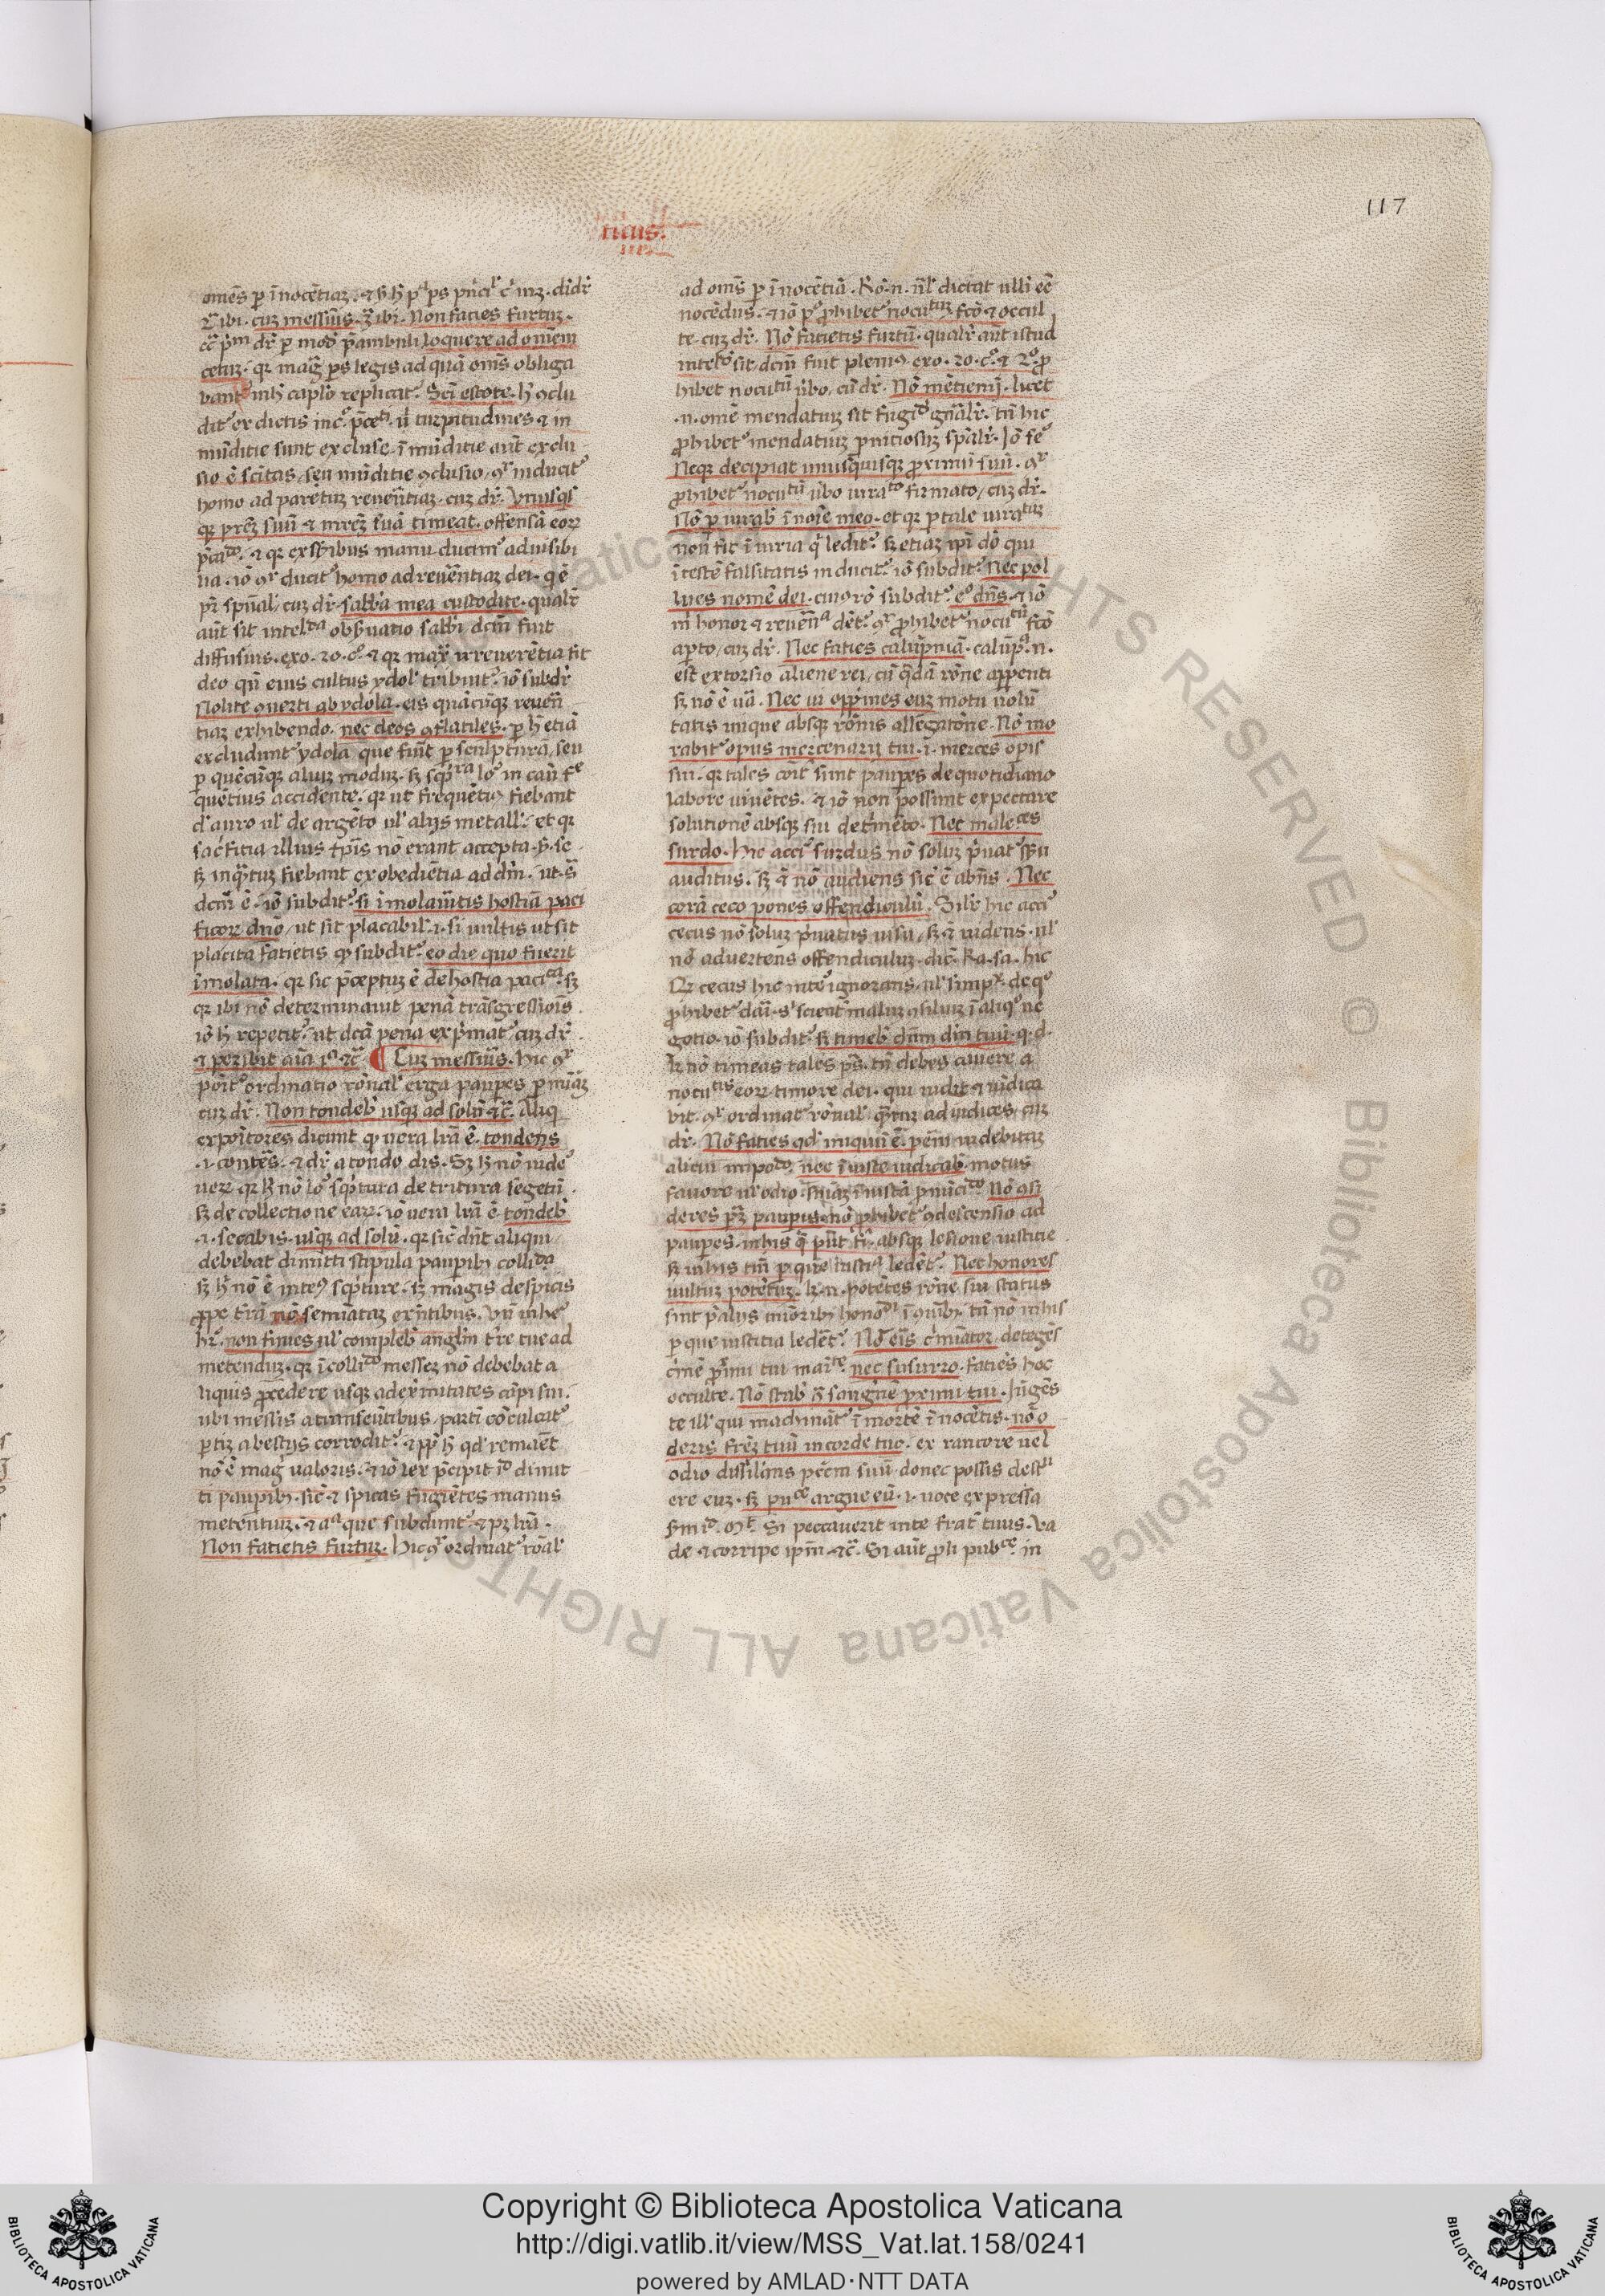 117
ticus.
omēs ꝑ īnocētiaꝫ
2ᵃ ibi. cuꝫ messius. 3ᵃ ibi. Non facies furtuꝫ.
dr̄ ꝑ mod p̄ambuli loquere ad omēem
cetuꝫ. qꝛ legis ad quā om̄s obliga
bant inh caplo replicat᷑. Sc̄i estote. h ꝯclu
dit᷑ ex dictis turpitudines ⁊ in
mūditie sunt excluse. īmūditie aūt exclu
sio ē sc̄itas, seu mūditie ꝯclusio, inducit᷑
homo ad parētuꝫ reuerētiaꝫ. cuꝫ dr̄. Vnusqͥs
qꝫ pr̄eꝫ suū ⁊ mr̄eꝫ suā timeat. offensā eoꝝ
⁊ qꝛ ex sēsibus manu ducim᷑ ad inuisibi
lia. iō ducit᷑ homo ad reuerētiaꝫ dei. qͥ ē
pr̄ spūal, cuꝫ dr̄. sabb̄a mea custodite. qualr̄
aūt sit intelᵈᵃ obẜuatio sabb̄i dcm̄ fuit
diffusius. exo. 20. cͦ. ⁊ qꝛ irreuerētia fit
deo qn̄ eius cultus ydol tribuit᷑. iō subdr̄
Nolite ꝯuerti ab ydola. eis quācūqꝫ reuerē
tiaꝫ exhibendo. nec deos ꝯflatiles. ꝑ h etiā
excludunt᷑ ydola que fiūt ꝑ sculptura, seu
ꝑ quēcūqꝫ aliuꝫ moduꝫ.
quētius accidente. qꝛ ut frequēti᷒ fiebant
d auro ul de argēto ul alijs metall. et qꝛ
sac̄ficia illius tp̄is nō erant accepta ꝑ se
sꝫ inqͣtuꝫ fiebant ex obediētia ad dm̄. ut sͣ
dcm̄ ē. iō subdit᷑. si īmolaueritis hostiā paci
ficoꝝ dn̄o, ut sit placabil. i. si uultis ut sit
placita facietis qͩ subdit᷑. eo die quo fuerit
īmolata. qꝛ sic p̄ceptuꝫ ē de hostia paciᶜᵃ. sꝫ
qꝛ ibi nō determinauit penā trāsgressiois
iō h repetit᷑. ut dcā pena exp̄mat᷑ cuꝫ dr̄.
⁊ peribit aīa ⁊c̄. ¶ Cuꝫ messius. Hic
ponit᷑ ordinatio rōnal erga paupes
cuꝫ dr̄. Non tondeb usqꝫ ad solū ⁊c̄. Aliqͥ
expoitores dicunt qͩ uera lr̄a ē. tondens
.i. conteres. ⁊ dr̄ a tondo dis. Sꝫ h nō uide᷑
ueꝝ qꝛ h nō lo᷑ sc̄ptura de tritura segetū.
sꝫ de collectione eaꝝ. iō uera lr̄a ē. tondeb
.i. secabis. usqꝫ ad solū. qꝛ sic dn̄t aliqui
debebat dimitti stipula paupibꝫ colliᵈᵃ
sꝫ h nō ē intē᷒ sc̄pture. sꝫ magis de spicis
ꝓpe trā nō seminataꝫ
non finies ul compleb anglm tre tue ad
metenduꝫ. qꝛ ī colliᵈᵒ messeꝫ nō debebat a
liquis ꝓcedere usqꝫ ad extmitates cāpi sui.
ubi messis a transeūtibus, parti cōculcat᷑
ptiꝫ a bestijs corrodit᷑. ⁊ ꝓp h qd remaēt
nō ē mag ualoris. ⁊ iō lex p̄cipit dimit
ti paupibꝫ. sic ⁊ spicas fugiētes manus
metentiuꝫ. ⁊ aᵃ que subdunt᷑. ⁊ pꝫ lr̄a.
Non facietis furtuꝫ. Hic ordinat᷑ rōal
ad om̄s ꝑ īnocētiā. Rō .n. nāl dictat ulli eē
nocēdus. ⁊ iō pͦ ꝓhibet᷑ nocuᵗᵘᵐ fcō ⁊ occul
te. cuꝫ dr̄. Nō facietis furtū. qualr̄ aūt istud
intelᵈᵒ sit. dcm̄ fuit pleni᷒. exo. 20. cͦ. ⁊ 2ͦ. ꝓ
hibet nocutū ūbo. cū dr̄. Nō mētiemī. licet
.n. omē mendatiuꝫ sit fugiᵈ gn̄alr̄. tn̄ hic
ꝓhibet᷑ mendatiuꝫ pnitiosuꝫ spālr̄. Iō se᷑
Neqꝫ decipiat unusquisqꝫ ꝓximū suū.
ꝓhibet᷑ nocutū ūbo iuraᵗᵒ firmato, cuꝫ dr̄.
Nō piurab ī noīe meo. et qꝛ ꝑ tale iuraᵗᵘᵐ
non fit īiuria qͥ ledit᷑. sꝫ etiaꝫ ipī dō qui
ī testē falsitatis inducit᷑. iō subdit᷑. Nec pol
lues nomē dei. cui᷒ rō subdit᷑. eͦ dn̄s. ⁊ iō
m honor ⁊ reuerēᵃ det᷑. ꝓhibet᷑ nocutū fcō
apto, cuꝫ dr̄. Nec facies calūpniā. calūpͣ .n.
est extorsio aliene rei, cū qͣdā rōne apparenti
sꝫ nō ē uā. Nec ui oppͥmes euꝫ motu uolū
tatis inique absqꝫ rōnis allegatōne. Nō mo
rabit᷑ opus mercenarij tui. i. merces opis
sui. qꝛ tales cōit sunt paupes de quotidiano
labore uiuētes. ⁊ iō non possunt expectare
solutionē absqꝫ sui detͥmēto. Nec maleᶜᵉˢ
surdo. Hic acci᷑ surdus nō soluꝫ pͥuat᷑ sēsu
auditus. sꝫ ⁊ nō audiens sic ē abn̄s. Nec
corā ceco pones offendiculū. Silr̄ hic acci᷑
cecus nō soluꝫ pͥuatus uisu, sꝫ ⁊ uidens. ul
nō aduertens offendiculuꝫ. dic. Ra. sa. hic
Qꝛ cecus hic inte᷑ ignorans, ul simpˣ. de qͦ
ꝓhibet᷑ malū ꝯsiliuꝫ ī aliqͦ ne
gotio. iō subdit᷑. sꝫ timeb dn̄m dm̄ tuū. q. d.
lꝫ nō timeas tales ps̄. tn̄ debes cauere a
nocuᵗⁱˢ eoꝝ timore dei. qui uidit ⁊ iudica
bit. ordinat᷑ rōnal qͣtuꝫ ad iudices, cuꝫ
dr̄. Nō facies qd iniquū ē. penā indebitaꝫ
alicui impoᵈᵒ. nec īiuste iudicab. motus
fauore ul odio. sn̄iaꝫ īiustā ꝓnūciᵈᵒ. Nō ꝯsi
deres psoꝫ paupis. nō ꝓhibet᷑ ꝯdescensio ad
paupes. inhis absqꝫ lesione iustitie.
sꝫ inhis tm̄ ꝑ que iustiᵃ ledēt᷑. Nec honores
uultuꝫ potētuꝫ. lꝫ .n. potētes rōne sui status
sint pͥ alijs minōribꝫ tn̄ nō inhis
ꝑ que iustitia ledēt᷑. Nō eīs cͥmiator. detegēs
cͥmē ꝓximi tui maīᵗᵉ. nec susurro. faciēs hoc
occulte. Nō stab 9 sanguīē ꝓximi tui. Iūgēs
te ill qui machināt᷑ ī mortē īnocētis. nō o
deris fr̄eꝫ tuū in corde tuo. ex rancore uel
odio dissilans pccm̄ suū. donec possis destͬu
ere euꝫ. sꝫ puᶜᵉ argue eū. i. uoce expressa
ẜm iͩ. Mᵗ. Si peccauerit inte frat tuus. Va
de ⁊ corripe ipm̄ ⁊c̄. Si aūt ꝓli pubᶜᵉ. in
Copyright © Biblioteca Apostolica Vaticana
http://digi.vatlib.it/view/MSS_Vat.lat.158/0241
powered by AMLAD·NTT DATA
BIBLIOTECA APOSTOLICA VATICANA
BIBLIOTECA APOSTOLICA VATICANA
© Biblioteca Apostolica Vaticana ALL RIGHTS RESERVED